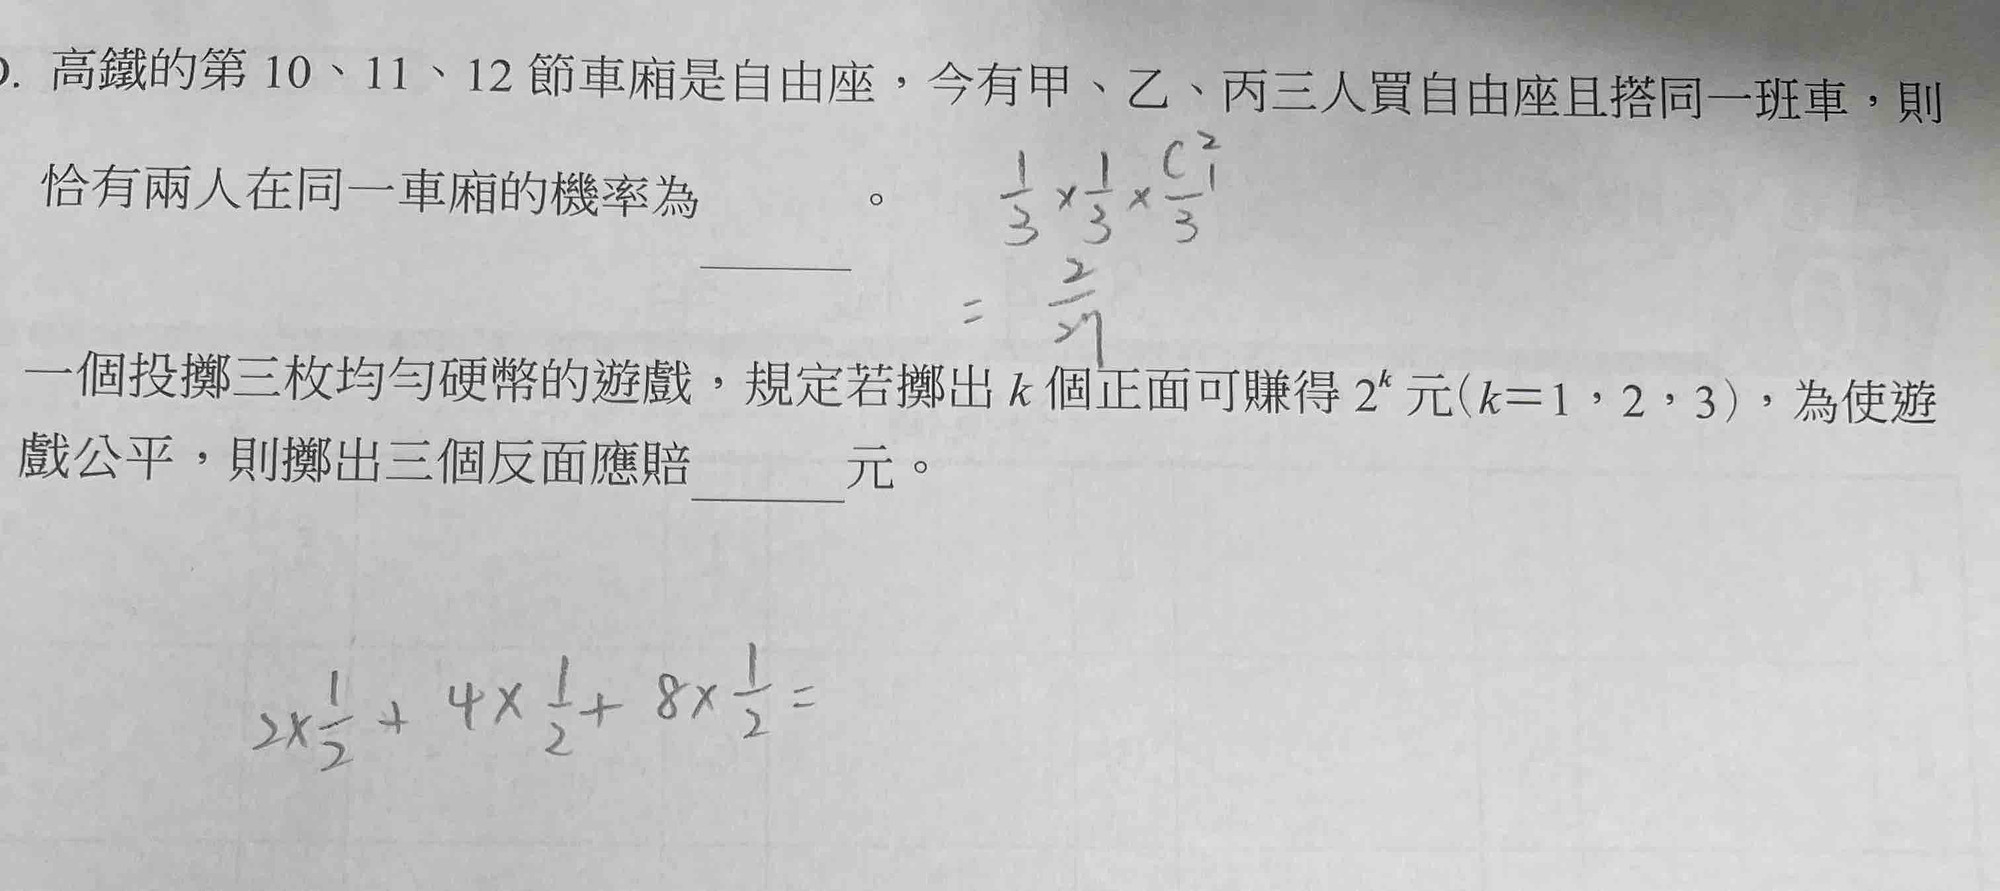 . 高鐵的第 10、11、12 節車廂是自由座，今有甲、乙、丙三人買自由座且搭同一班車，則
恰有兩人在同一車廂的機率為______。
1/3 × 1/3 × C²₁/3
= 2/27
一個投擲三枚均勻硬幣的遊戲，規定若擲出 k 個正面可賺得 2^k 元(k＝1，2，3)，為使遊
戲公平，則擲出三個反面應賠______元。
2×1/2 + 4×1/2 + 8×1/2 =